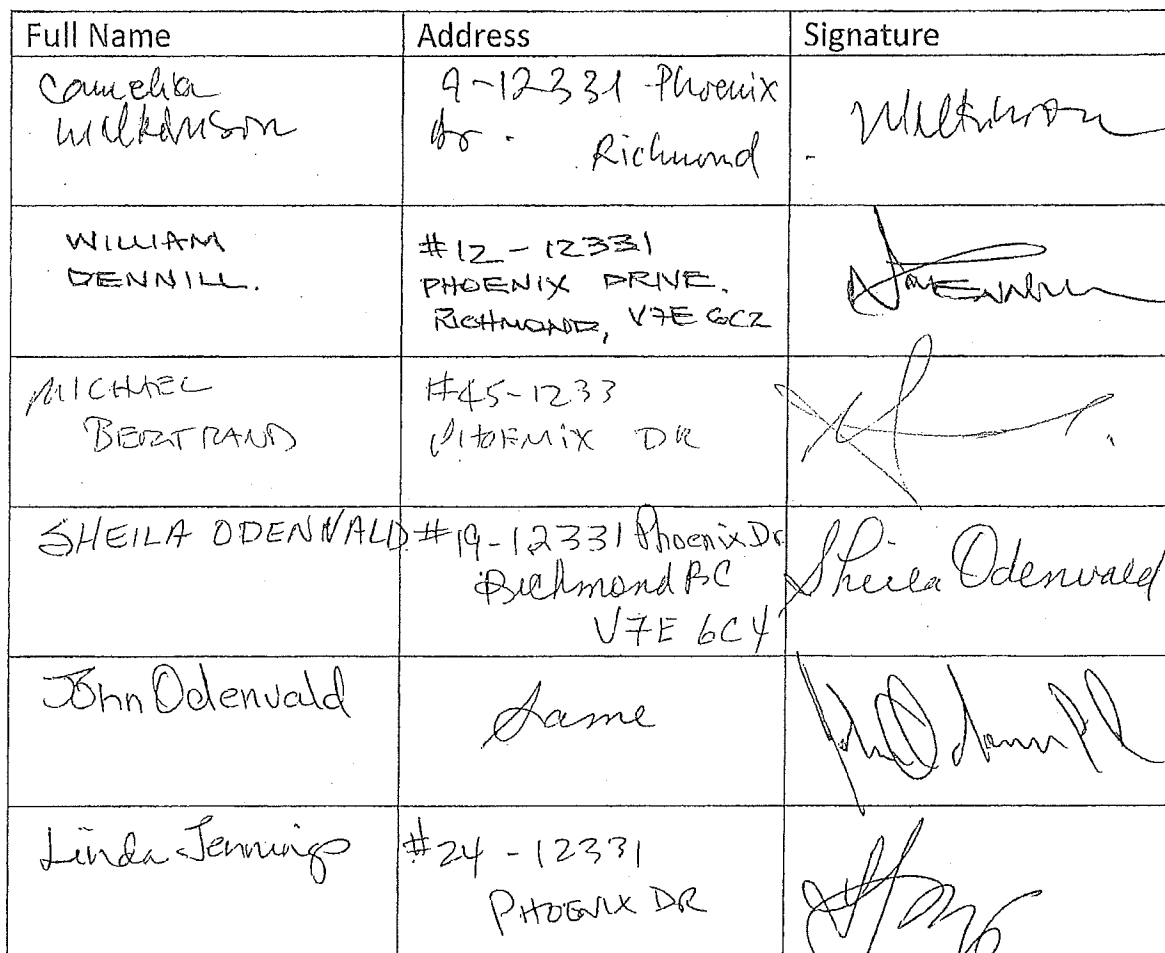 Full Name Address Signature
Camelia
Wilkinson
9-12331 Phoenix
Dr.
Richmond
Wilkinson
WILLIAM
DENNILL.
#12-12331
PHOENIX DRIVE.
RICHMOND, V7E 6C2
MICHAEL
BERTRAND
#45-1233
PHOENIX DR
SHEILA ODENWALD
#19-12331 Phoenix Dr
Richmond BC
V7E 6C4
Sheila Odenwald
John Odenwald
Same
Linda Jennings
#24-12331
PHOENIX DR